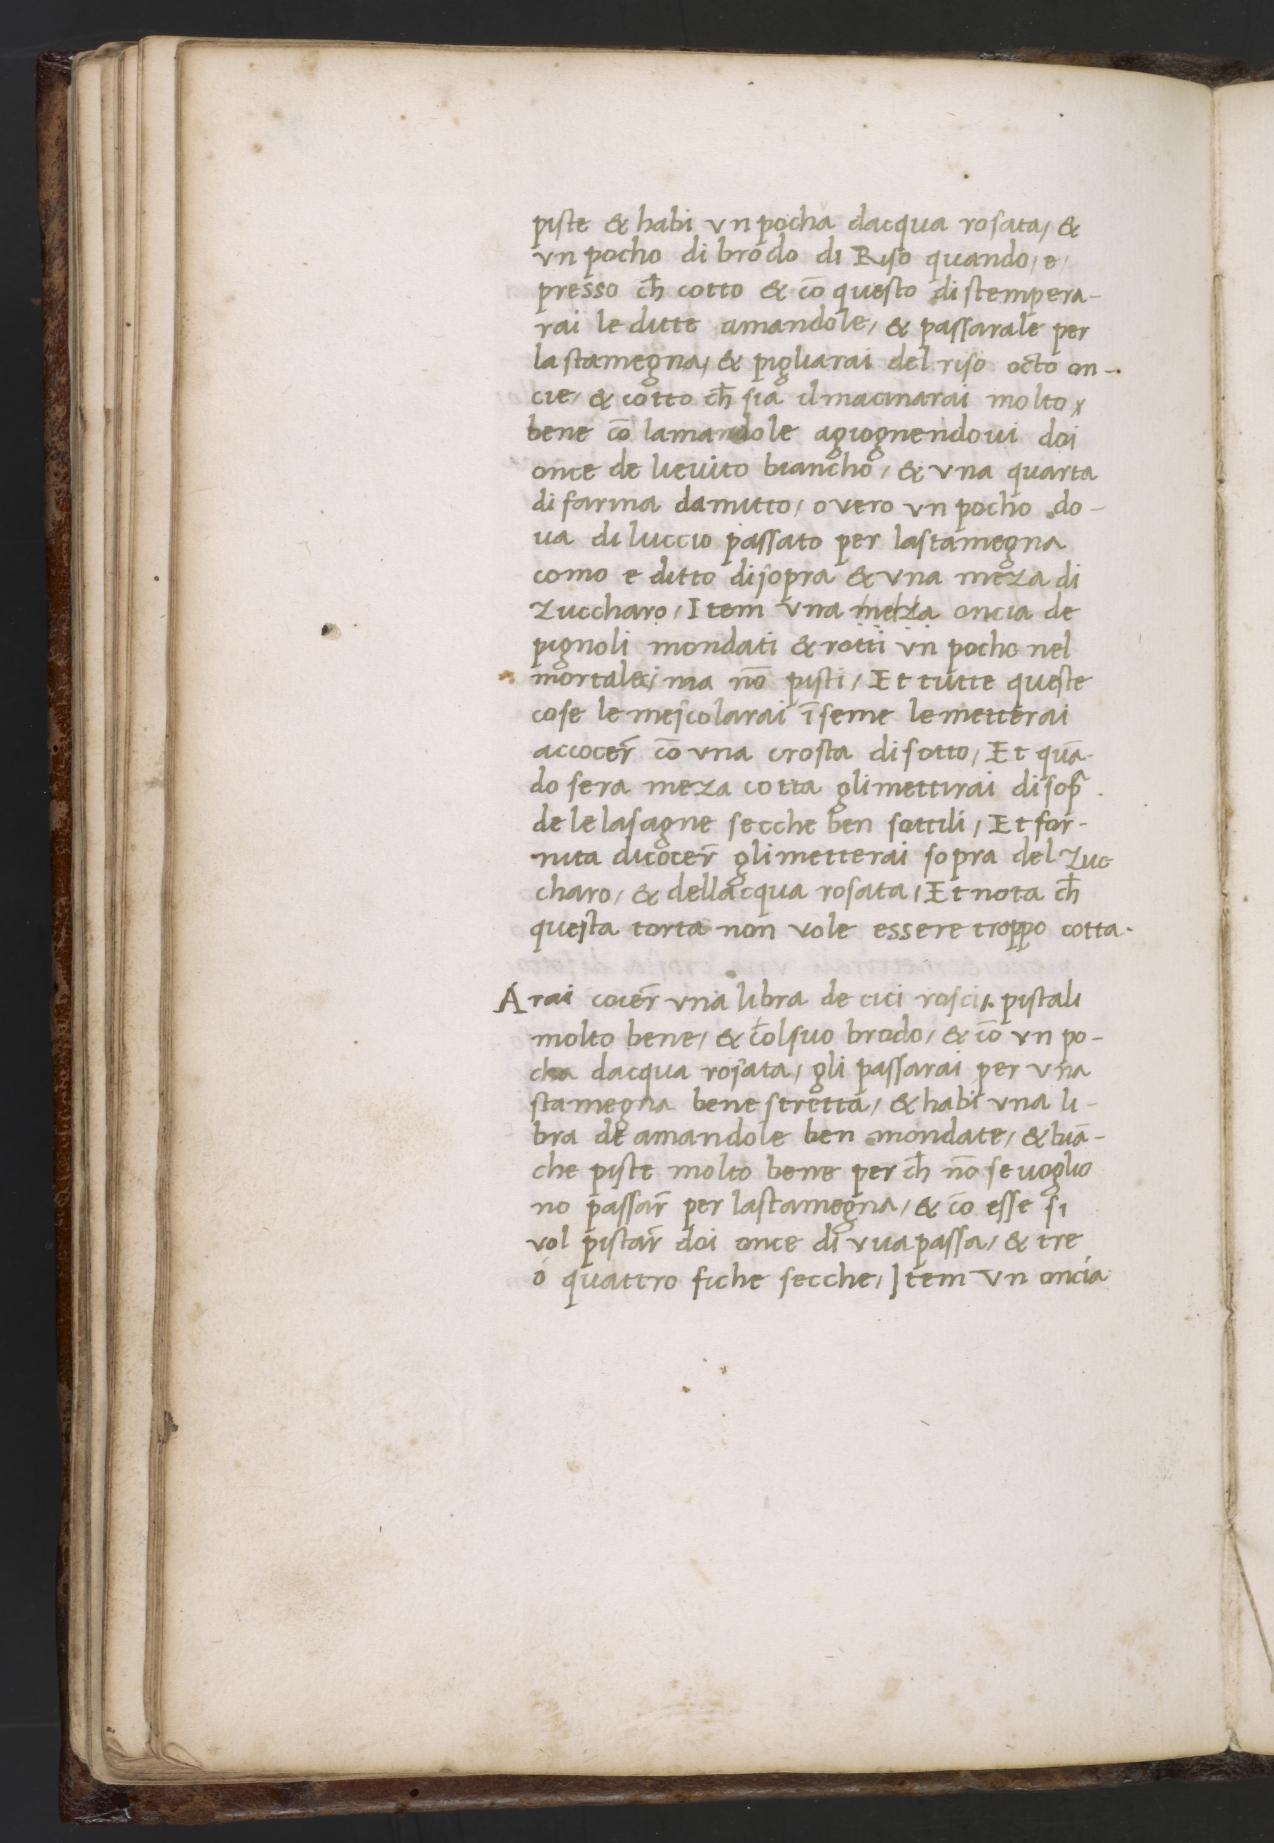 piste & habi vn pocha dacqua rosata, &
vn pocho di brodo di Riso quando, e,
presso ch̄ cotto & cō questo distempera-
rai le ditte amandole, & passarale per
la stamegna, & pigliarai del riso octo on-
cie, & cotto ch̄ sia il macinarai molto
bene cō lamandole agiognendoui doi
once de lieuito biancho, & vna quarta
di farina damitto, overo vn pocho do-
ua di luccio passato per lastamegna
como e ditto disopra & vna meza di
Zuccharo, Item vna meza oncia de
pignoli mondati & rotti vn pocho nel
mortale, ma nō pisti, Et tutte queste
cose le mescolarai īseme le metterai
accocer̄ cō vna crosta di sotto, Et quā-
do sera meza cotta gli mettirai di sop̄
de le lasagne secche ben sottili, Et for-
nita dicocer̄ gli metterai sopra del Zuc
charo, & dellacqua rosata, Et nota ch̄
questa torta non vole essere troppo cotta.
Arai cocer̄ vna libra de cici rosci, pistali
molto bene, & c̄olsuo brodo, & cō vn po-
cha dacqua rosata, gli passarai per vna
stamegna bene stretta, & habi vna li-
bra de amandole ben mondate, & biā-
che piste molto bene per ch̄ nō se voglio
no passar̄ per lastamegna, & cō esse si
vol pistar̄ doi once di vua passa, & tre
ó quattro fiche secche, Item vn oncia